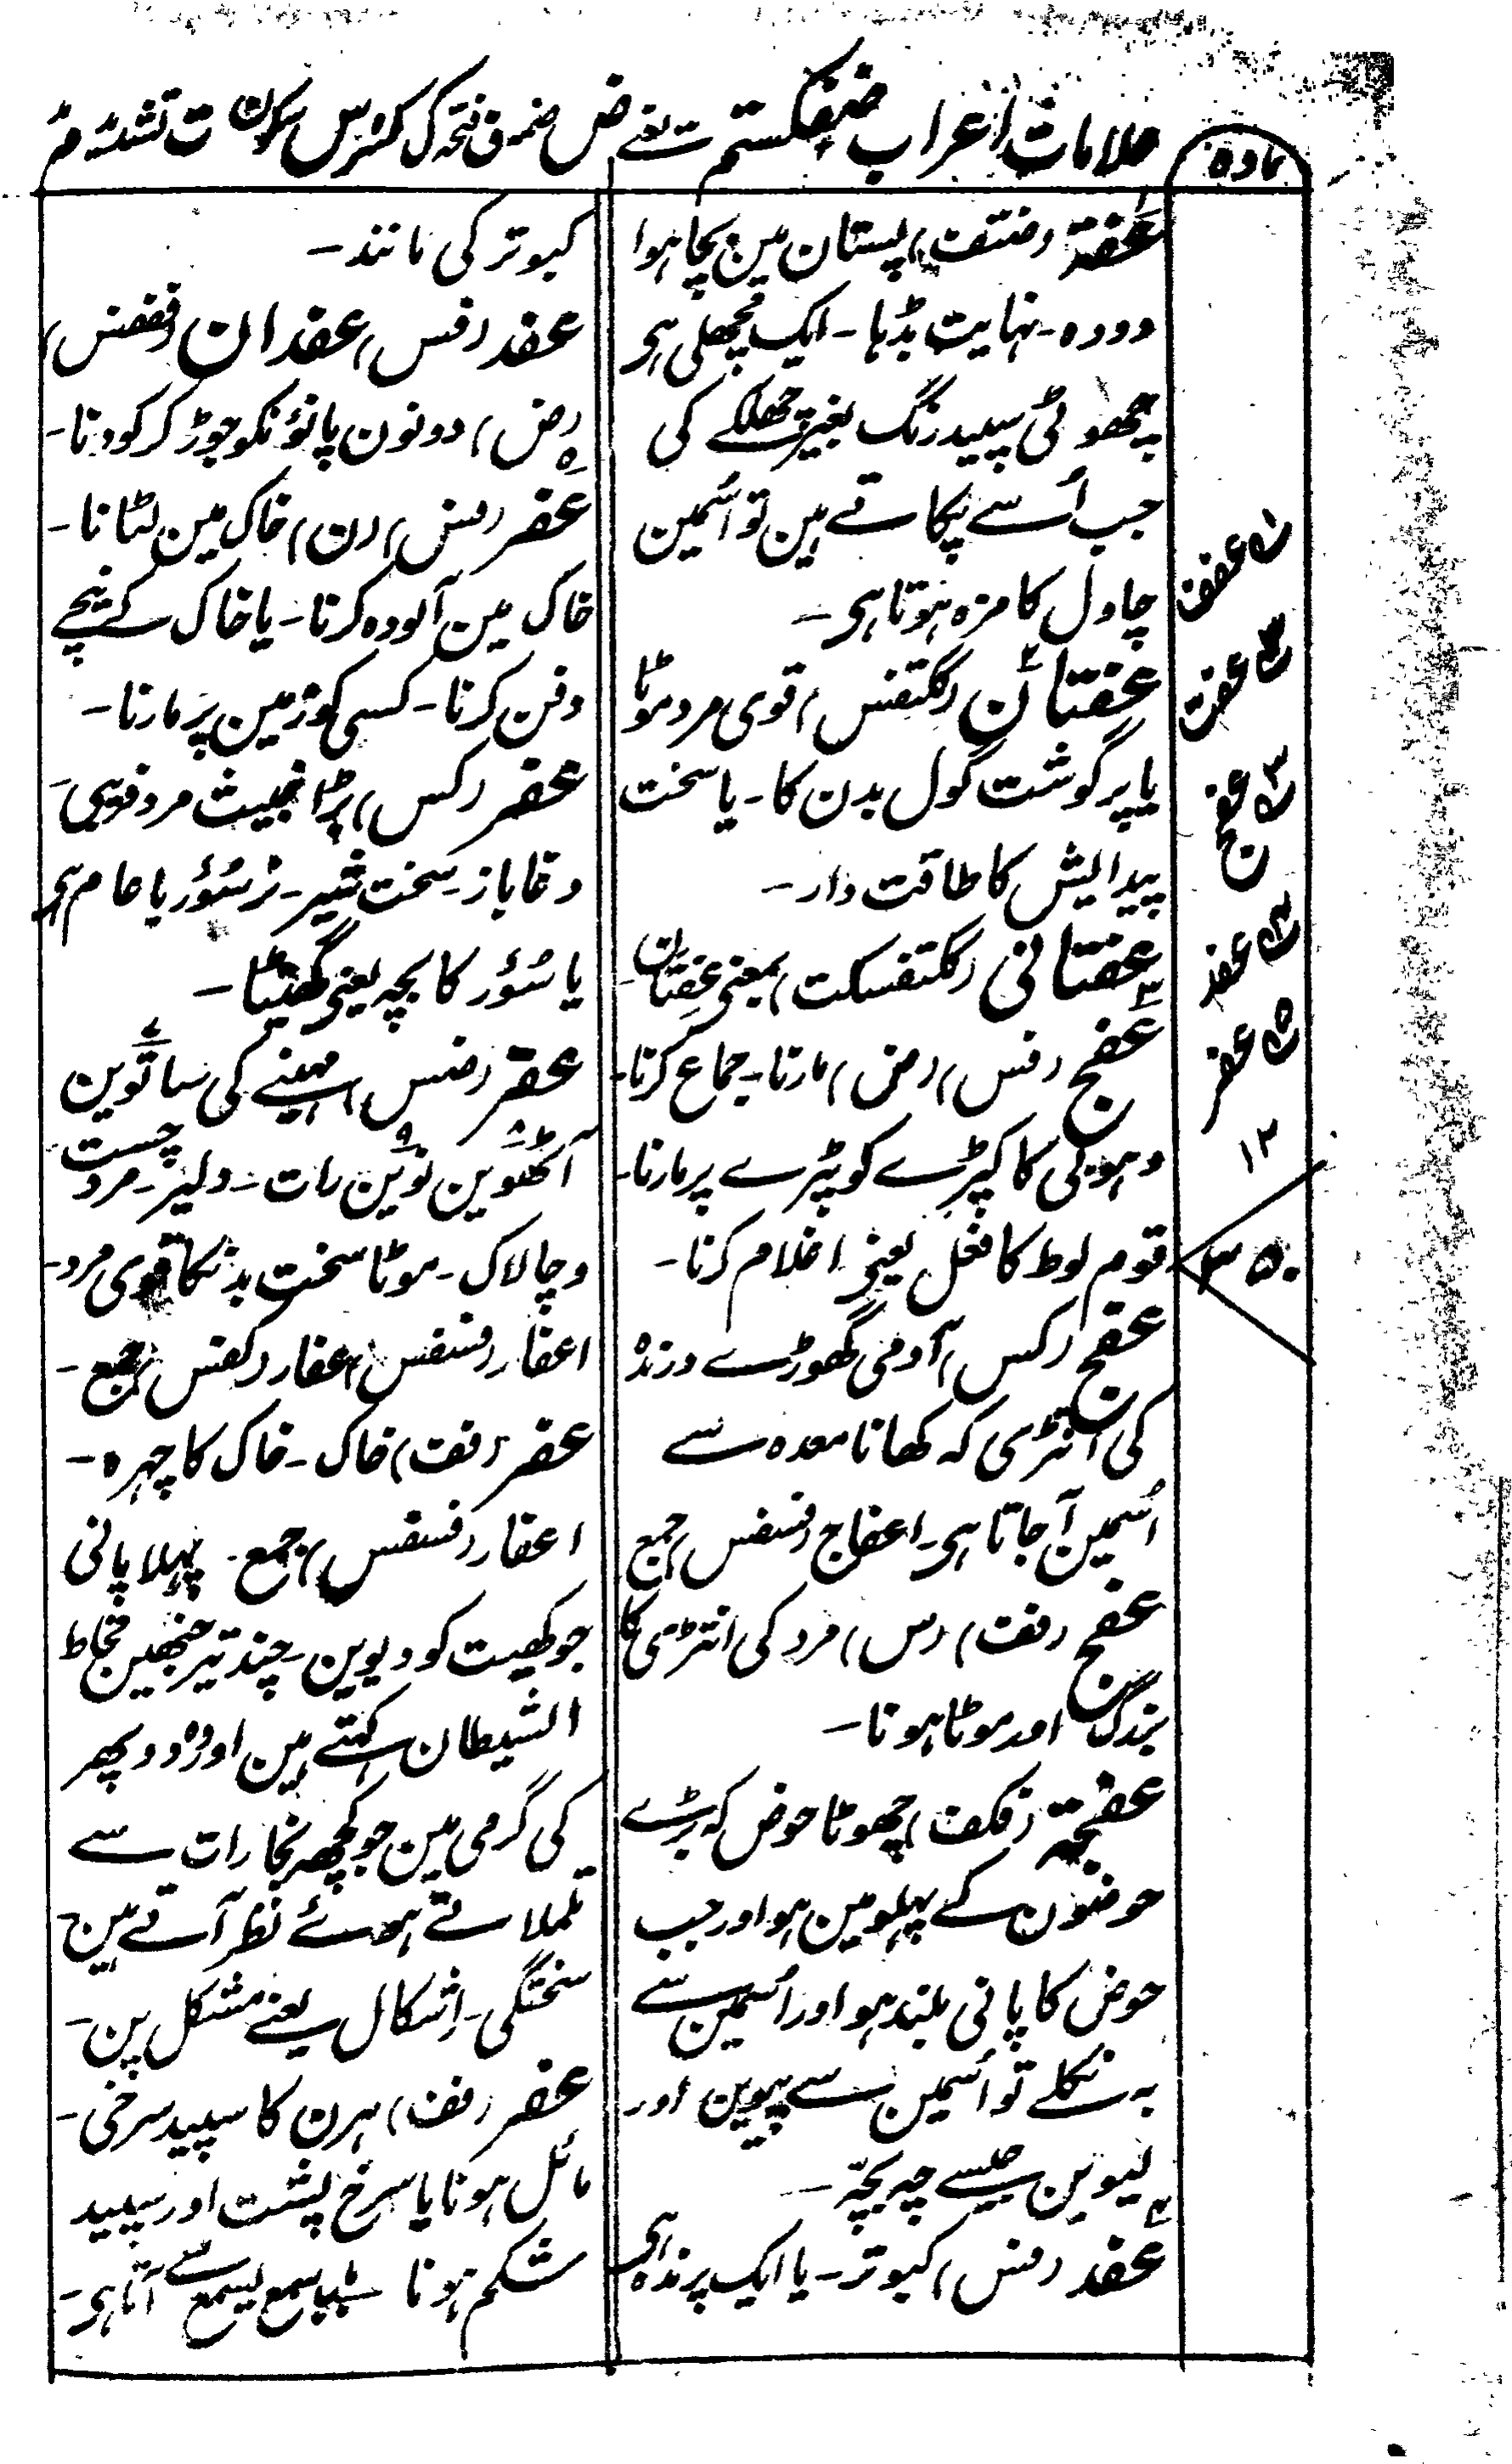 مادہ
علامات اعراب ضفکستم یعنے ض ضمہ ف فتحہ ک کسرہ س سکون ت تشدید م مد
عُفَّۃ (ضتف) پستان مین بچا ہوا
دودہ۔ نہایت بڈہا۔ ایک مچھلی ہی
چھوٹی سپید رنگ بغیر چھلکے کی
جب اُسے پکاتے ہین تو اُسمین
چاول کا مزہ ہوتا ہی۔
عِفِتّان (کتفس) قوی مرد موٹا
یا پر گوشت گول بدن کا۔ یا سخت
پیدایش کا طاقت دار۔
عفتانی (کتفسکت) بمعنی عِفتان۔
عَفج (فس) (ض) مارنا۔ جماع کرنا۔
دہوبی کا کپڑے کو پٹرے پر مارنا۔
قوم لوط کا فعل یعنی اغلام کرنا۔
عفج (کس) آدمی گھوڑے درندہ
کی انتڑی کہ کھانا معدہ سے
اُسمین آ جاتا ہی۔ اعفاج (فسفس) جمع
عفج (فف) (س) مرد کی انتڑی کا
بزرگ اور موٹا ہونا۔
عفجہ (فکف) چھوٹا حوض کہ بڑے
حوضون کے پہلو مین ہو اور جب
حوض کا پانی بلند ہو اور اُسمین سے
بہ نکلے تو اُسمین سے پیوین اور
لیوین جیسے چہ بچّہ۔
عَفد (فس) کبوتر۔ یا ایک پرندہ ہی
کبوتر کی مانند۔
عفد (فس) عفدان (ففس)
(ض) دونون پانؤنکو جوڑ کر کودنا۔
عَفر (فس) (ن) خاک مین لٹانا۔
خاک مین آلودہ کرنا۔ یا خاک کے نیچے
دفن کرنا۔ کسی کو زمین پر مارنا۔
عفر (کس) بڑا خبیث مرد فریبی۔
دغاباز۔ سخت شیر۔ نر سُؤر یا عام ہی
یا سُؤر کا بچہ یعنی گھیٹا۔
عفر (ضس) مہینے کی ساتوین
آٹھوین نوین رات۔ دلیر۔ مرد چست
و چالاک۔ موٹا سخت بدنکا قوی مرد۔
اعفار (فسفس) عفار (کفس) جمع۔
عفر (فف) خاک۔ خاک کا چہرہ۔
اعفار (فسفس) جمع۔ پہلا پانی
جو کھیت کو دیوین۔ چند تیر جنھین مخاط
الشیطان کہتے ہین اور وہ دوپہر
کی گرمی مین جو کچھ بخارات سے
تلملاتے ہوئے نظر آتے ہین
سختگی۔ اِشکال یعنے مشکل پن۔
عفر (فف) ہرن کا سپید سرخی۔
مائل ہونا یا سرخ پشت اور سپید
شکم ہونا سمع یسمع سے آتا ہی۔
۱ عفف
۲ عفت
۳ عفج
۴ عفد
۵ عفر
۱۲
۳۵۰